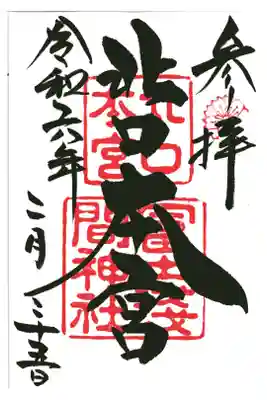 参拝
北口本宮
令和六年
二月二十五日
北口
本宮
冨士浅
間神社